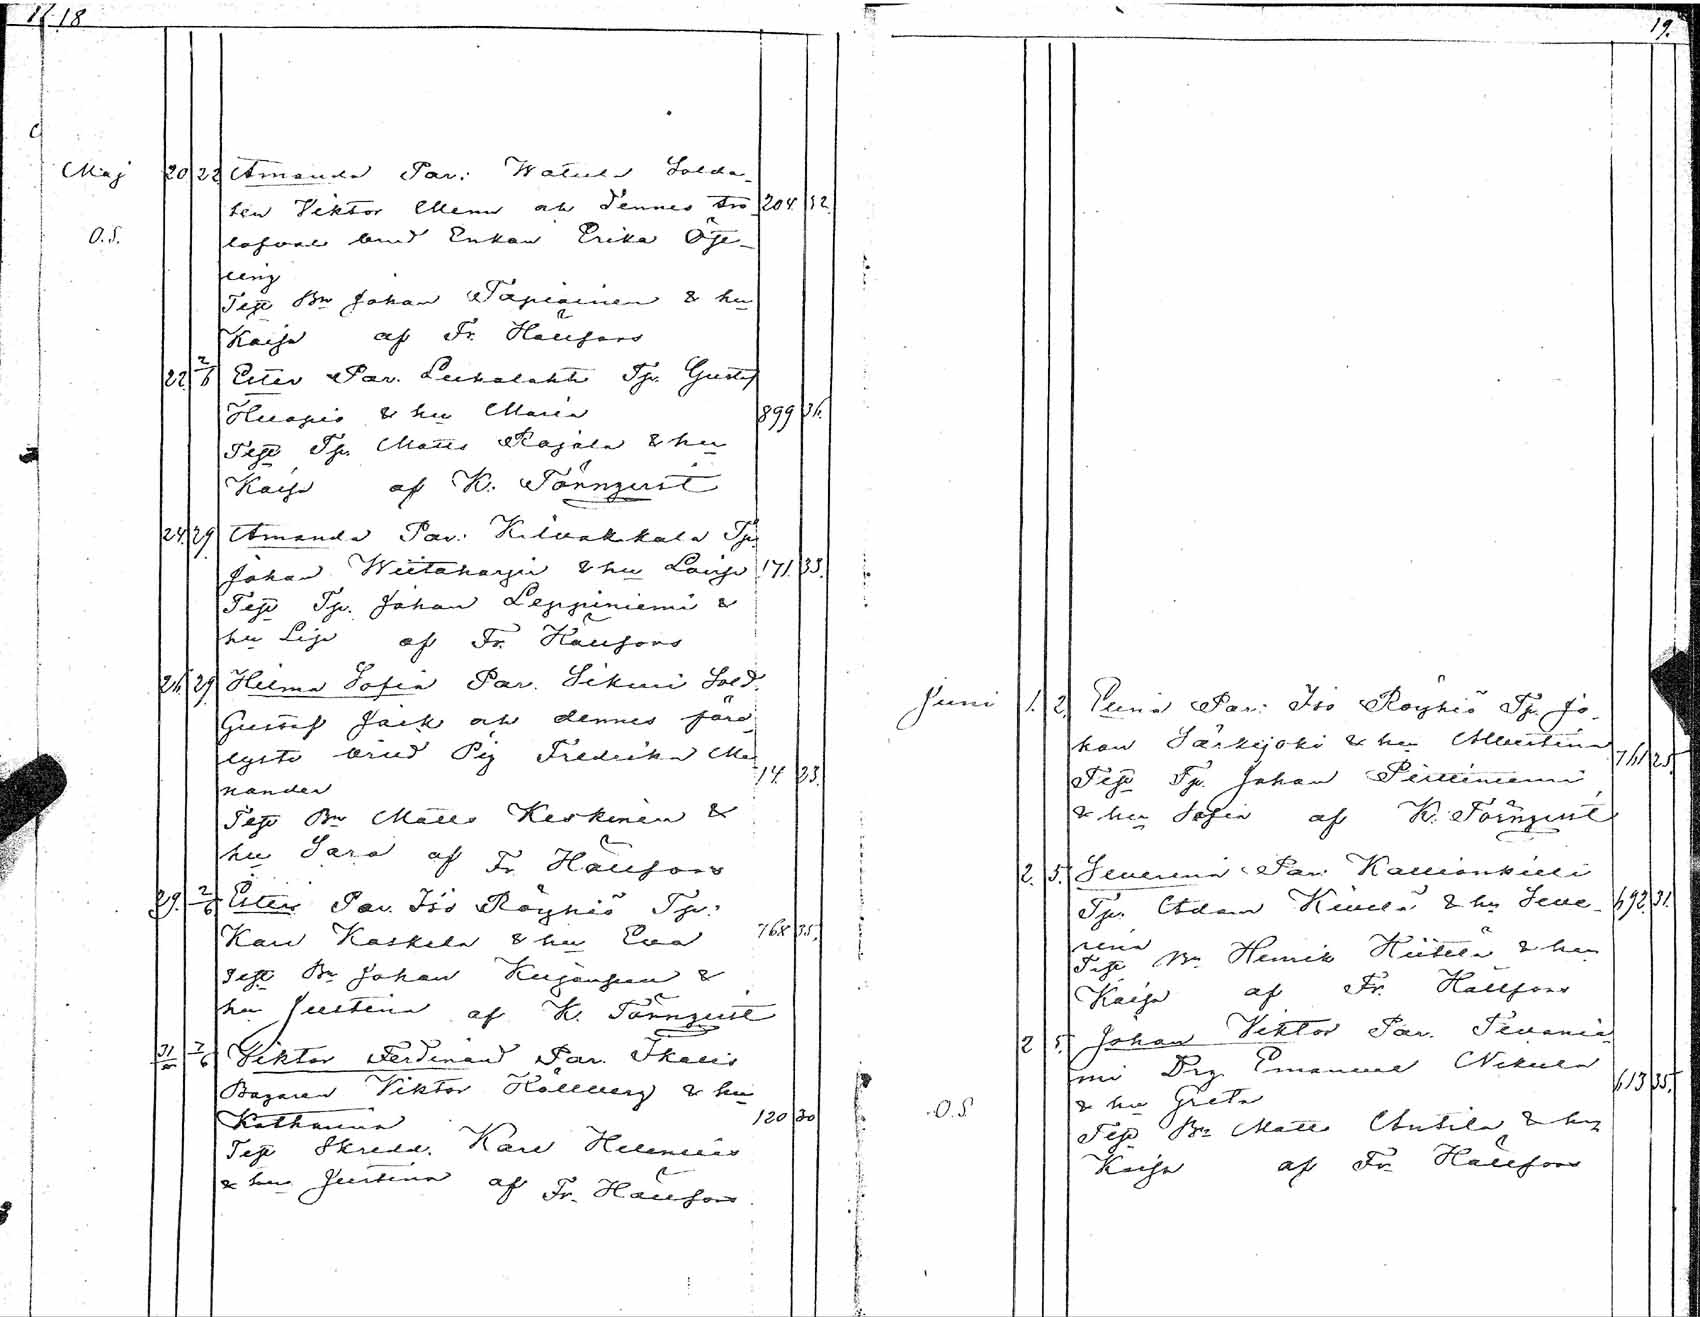 18
Maj 20 22 Amanda Par: Watula Solda-
ten Viktor Menn och dennes tro- 204. 32.
O.S. lofvade brud Enkan Erika Öje-
ling
Test Bn Johan Tapiainen & hu
Kaisa af Fr. Hällfors
22. 2/6 Ester Par. Tp. Gustaf
Huapio & hu Maria 899 36.
Test Tp. Matts Rajala & hu
Kaisa af K. Törnqvist
24. 29. Amanda Par: Kilvakkala Tp.
Johan Wiitaharju & hu Lovisa 171. 33.
Test Tp. Johan Leppiniemi &
hu Lisa af Fr. Hällfors
26. 29. Hilma Sofia Par. Sikuri Sold.
Gustaf Jäck och dennes före
lysta brud Pig Fredrika Me
nander 14. 23.
Test Bn Matts Keskinen &
hu Sara af Fr. Hällfors
29. 2/6 Ester Par. Iso Röyhiö Tp:
Karl Kaskela & hu Eva 768 35.
Test Bn Johan Kujanpää &
hu Justina af K. Törnqvist
31 7/6 Viktor Ferdinand Par. Ikalis
Bagaren Viktor Hållberg & hu
Katharina 120 30
Test Skredd. Karl Helenius
& hu Justina af Fr. Hällfors
19.
Juni 1. 2. Elina Par: Iso Röyhiö Tp. Jo-
han Särkijoki & hu Albertina 761 25.
Test Tp. Johan Pirttiniemi
& hu Sofia af K. Törnqvist
2. 5. Severina Par: Kallionkieli
Tp. Adam Kivelä & hu Seve- 692. 31.
rina
Test Bn Henrik Hiitelä & hu
Kaisa af Fr. Hällfors
2 5. Johan Viktor Par. Tevania
mi Drg Emanuel Nikula 613 35.
& hu Greta
O.S Test Bn Matts Antila & hu
Kaisa af Fr. Hällfors